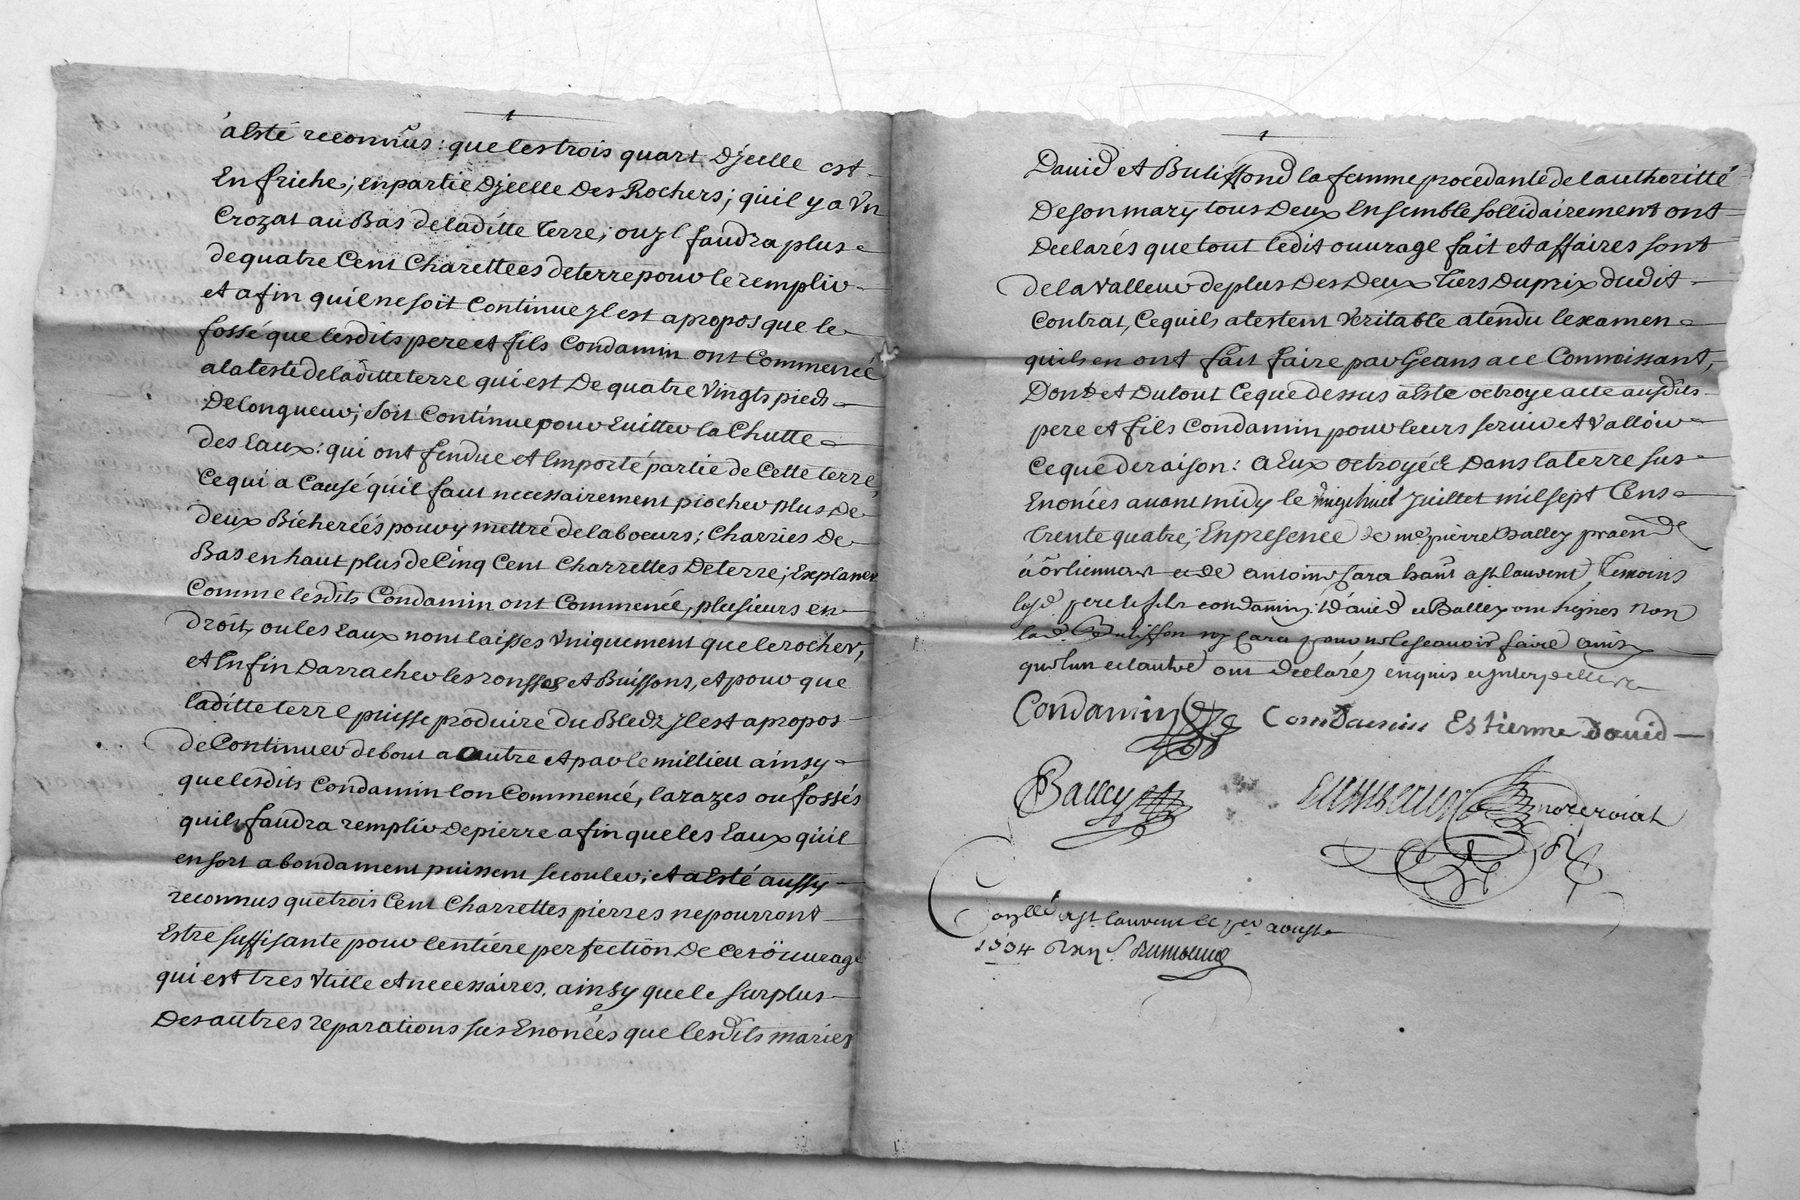 a Esté reconnus: que les trois quart Djcelle est
En friche; en partie Djcelle Des Rochers; quil y a Vn
Crozat au Bas de laditte Terre; ou jl faudra plus
de quatre Cent Charettees de terre pour le remplir
et afin quil ne soit Continue jl est a propos que le
fossé que lesdits pere et fils Condamin ont Commencé
a la teste de laditte terre qui est De quatre Vingts pieds
De longueur; soit Continue pour Euitter la Chutte
des Eaux: qui ont fendue et Emporté partie de Cette terre,
Ce qui a Causé quil faut necessairement piocher plus De
deux Bicherées pour y mettre de laboeurs; Charries De
Bas en haut plus de Cinq Cent Charrettes De terre; Explaner
Comme lesdits Condamin ont Commencé, plusieurs en
droit, ou les Eaux nont laisses Vniquement que le rocher,
et Enfin Darracher les ronsses et Buissons, et pour que
laditte terre puisse produire du Bled, jl est a propos
de Continuer de bout a autre et par le millieu ainsy
que lesdits Condamin lon Commencé, la razes ou fossés
quils faudra remplir De pierre afin que les Eaux quil
en sort abondament puissent secouler; et a Esté aussy
reconnus que trois Cent Charrettes pierres ne pourront
Estre suffisante pour lentiére perfection De Cet ouurage
qui est tres Vtille et necessaires, ainsy que le surplus
Des autres reparations sus Enoncées que lesdits mariés
Dauid et Buliffond la femme procedante de lauthoritté
De son mary tous Deux Ensemble sollidairement ont
Declarés que tout ledit ouurage fait et affaires sont
de la Valleur de plus Des Deux Tiers Du prix dudit
Contrat, Ce quils atestent Veritable atendu lexamen
quils en ont fait faire par Geans a ce Connoissant,
Dont et Du tout Ce que dessus a Este octroye acte ausdits
pere et fils Condamin pour leurs seruir et Valloir
Ce que de raison: a Eux octroyée Dans la terre sus
Enoncées auant midy le vingt huit Juillet mil sept Cens
Trente quatre; En presence de me pierre Balley
et de antoine Zara a st laurent, Temoins
pere et fils condamin; Dauid et Balley ont signes non
la d. Buliffon ny Zara pour ne le scauoir faire ainsy
que lun et lautre ont declarez enquis
Condamin Condamin Estienne Dauid
Balley
not. royal
a st laurent le aoust
1734